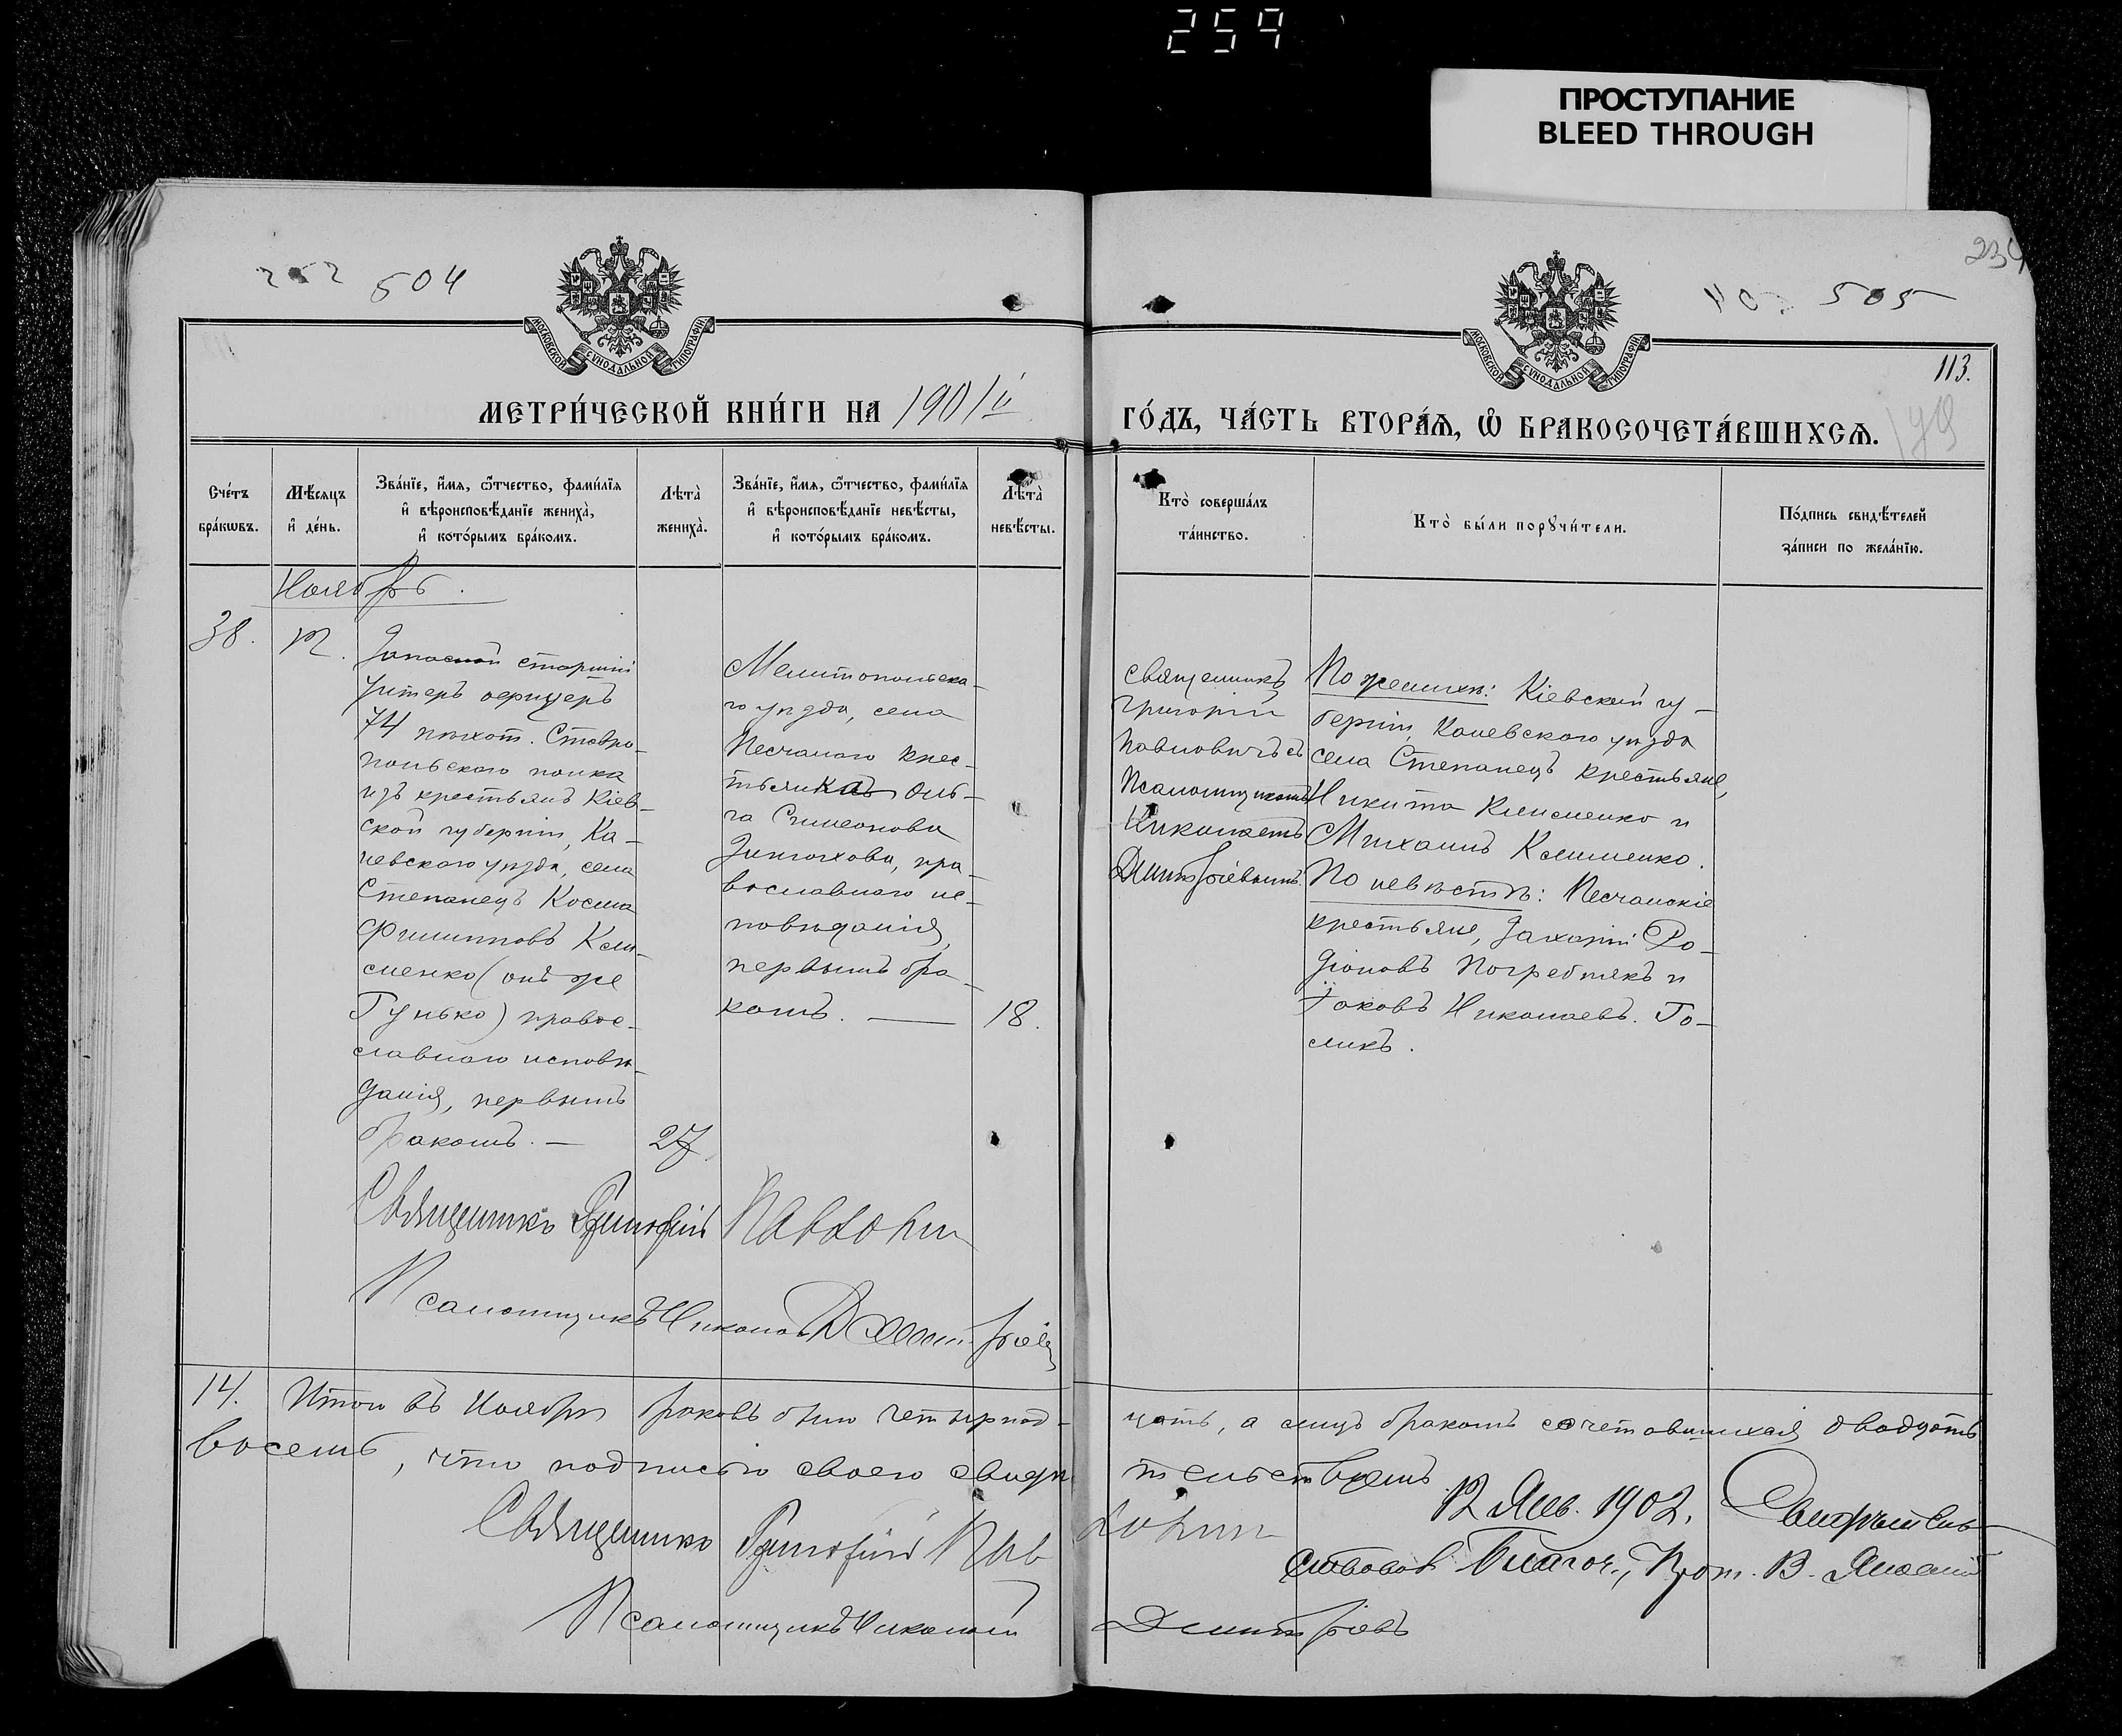 259
ПРОСТУПАНИЕ
BLEED THROUGH
504
505
МОСКОВСКОЙ СУНОДАЛЬНОЙ ТИПОГРАФІИ.
МОСКОВСКОЙ СУНОДАЛЬНОЙ ТИПОГРАФІИ.
113.
МЕТРИ́ЧЕСКОЙ КНИ́ГИ НА 1901й
ГО́ДЪ, ЧА́СТЬ ВТОРА́Ѧ, Ѽ БРАКОСОЧЕТА́ВШИХСѦ.
Сче́тъ
бра́кѡвъ.
Мѣ́сяцъ
и҆ де́нь.
Зва́нїе, и҆́мя, ѻ҆́тчество, фами́лїя
и҆ вѣроисповѣ́данїе жениха̀,
и҆ кото́рымъ бра́комъ.
Лѣта̀
жениха̀.
Зва́нїе, и҆́мя, ѻ҆́тчество, фами́лїя
и҆ вѣроисповѣ́данїе невѣ́сты,
и҆ кото́рымъ бра́комъ.
Лѣта̀
невѣ́сты.
Кто̀ соверша́лъ
та́инство.
Кто̀ бы́ли порꙋчи́тели.
По́дпись свидѣ́телей
за́писи по жела́нїю.
Ноябрь.
38.
12.
Запасной старшій
унтеръ офицеръ
74 пѣхот. Ставро-
польскаго полка
изъ крестьянъ Кіев-
ской губерніи, Ка-
невскаго уѣзда, села
Степанецъ Косма
Филипповъ Кли-
менко (онъ же
Гунько) право-
славнаго исповѣ-
данія, первымъ
бракомъ. —
27
Мелитопольска-
го уѣзда, села
Песчанаго крес-
тьянка Оль-
га Симеонова
православнаго ис-
повѣданія,
первымъ бра-
комъ. —
18.
Священникъ
Григорій
Павловичъ съ
Псаломщикомъ
Николаемъ
Димитріевымъ.
По женихѣ: Кіевской гу-
берніи, Каневскаго уѣзда
села Степанецъ крестьяне,
Никита Клименко и
Михаилъ Клименко.
По невѣстѣ: Песчанскіе
крестьяне, Захарій Ро-
діоновъ Погребнякъ и
Іаковъ Николаевъ. Го-
ликъ.
Священникъ Григорій
Псаломщикъ Николай Димитріевъ
14. Итого въ Ноябрѣ браковъ было четырнад-
цать, а лицъ бракомъ сочетавшихся двадцать
восемъ, что подписью своею свидѣ-
тельствуемъ.
Священникъ Григорій Пав
Псаломщикъ Николай
Димитріевъ
12 Янв. 1902.
Благоч., Прот. В.